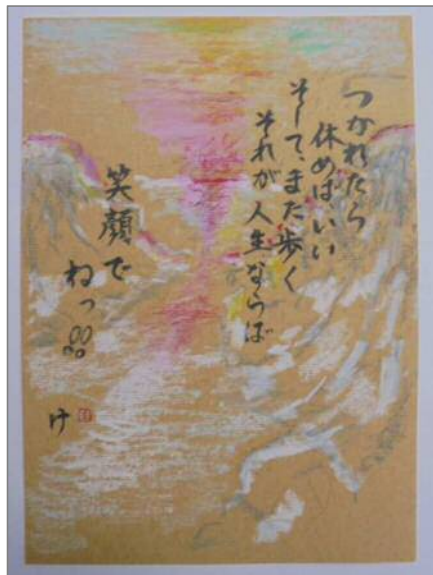 つかれたら
休めばいい
そして、また歩く
それが人生ならば
笑顔で
ねっ
け